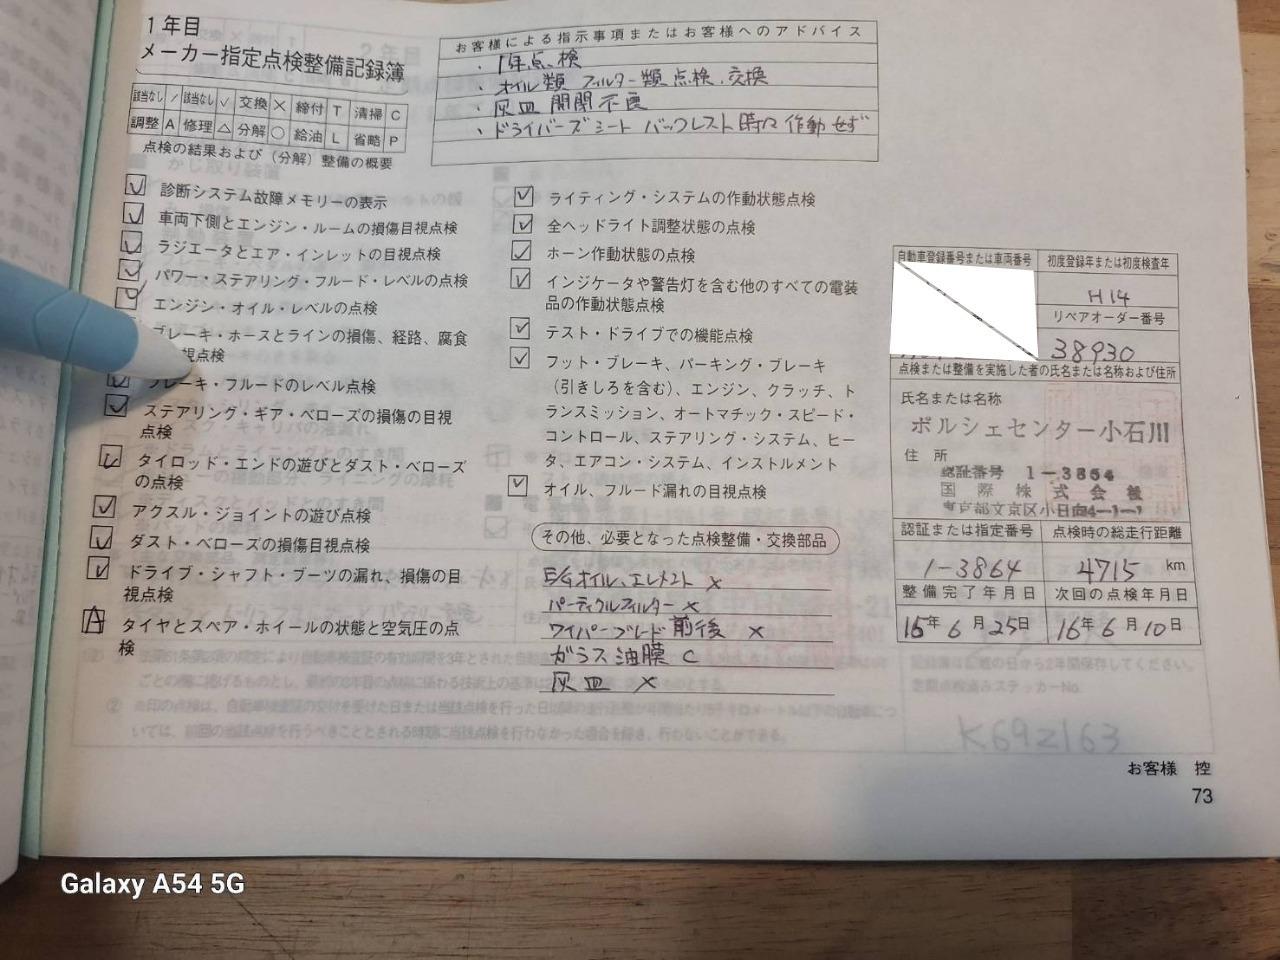 1年目
メーカー指定点検整備記録簿
該当なし / 該当なし ✓ 交換 × 締付 T 清掃 C
調整 A 修理 △ 分解 ○ 給油 L 省略 P
点検の結果および（分解）整備の概要
お客様による指示事項またはお客様へのアドバイス
・1年点検
・オイル類 フィルター類点検、交換
・灰皿 開閉不良
・ドライバーズシート バックレスト時々作動せず
診断システム故障メモリーの表示
車両下側とエンジン・ルームの損傷目視点検
ラジエータとエア・インレットの目視点検
パワー・ステアリング・フルード・レベルの点検
エンジン・オイル・レベルの点検
ブレーキ・ホースとラインの損傷、経路、腐食
視点検
ブレーキ・フルードのレベル点検
ステアリング・ギア・ベローズの損傷の目視
点検
タイロッド・エンドの遊びとダスト・ベローズ
の点検
アクスル・ジョイントの遊び点検
ダスト・ベローズの損傷目視点検
ドライブ・シャフト・ブーツの漏れ、損傷の目
視点検
A タイヤとスペア・ホイールの状態と空気圧の点
検
ライティング・システムの作動状態点検
全ヘッドライト調整状態の点検
ホーン作動状態の点検
インジケータや警告灯を含む他のすべての電装
品の作動状態点検
テスト・ドライブでの機能点検
フット・ブレーキ、パーキング・ブレーキ
（引きしろを含む）、エンジン、クラッチ、ト
ランスミッション、オートマチック・スピード・
コントロール、ステアリング・システム、ヒー
タ、エアコン・システム、インストルメント
オイル、フルード漏れの目視点検
その他、必要となった点検整備・交換部品
E/Gオイル、エレメント ×
パーティクルフィルター ×
ワイパーブレード前後 ×
ガラス油膜 C
灰皿 ×
自動車登録番号または車両番号
初度登録年または初度検査年
H14
リペアオーダー番号
38930
点検または整備を実施した者の氏名または名称および住所
氏名または名称
ポルシェセンター小石川
住所
認証番号 1-3864
国際株式会社
東京都文京区小日向4-1-1
認証または指定番号 点検時の総走行距離
1-3864 4715 km
整備完了年月日 次回の点検年月日
15年6月25日 16年6月10日
K69Z163
お客様 控
73
Galaxy A54 5G